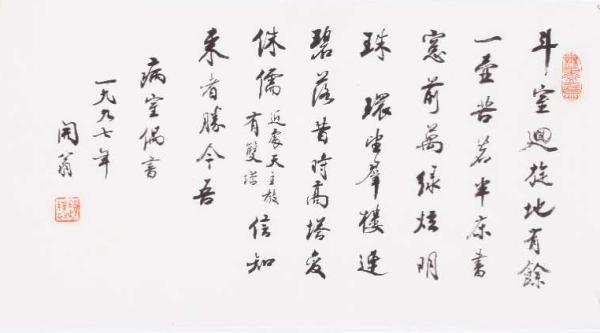 斗室迴旋地有餘
一壺苦茗半床書
窓前萬綠炫明
珠環坐羣樓連
碧落昔時高塔变
侏儒近處天主教有雙塔信知
来者勝今吾
病室偶書
一九九七年
翁